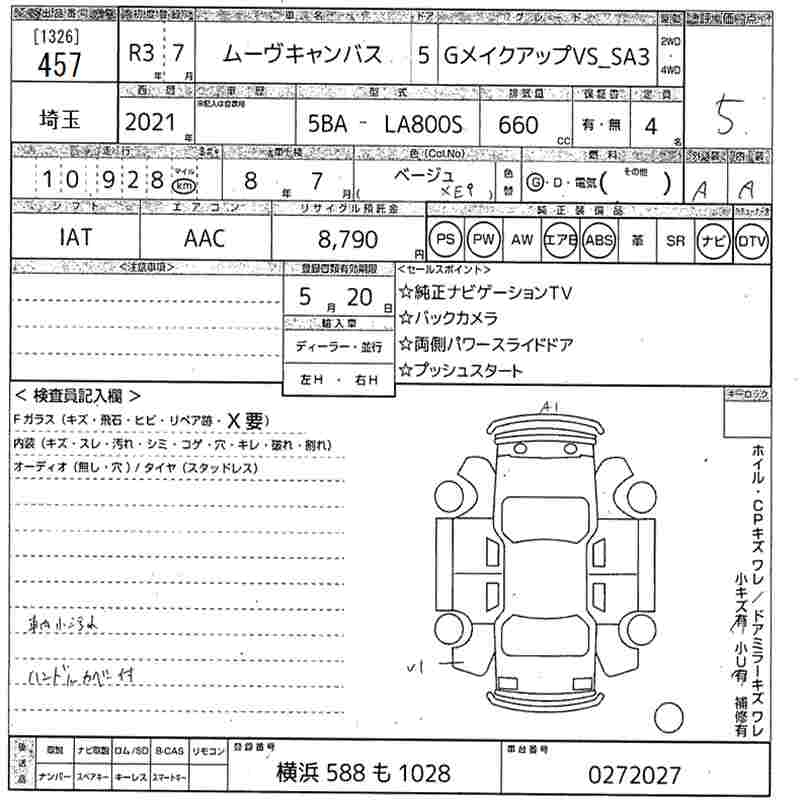 出品番号 初度登録 車名 ドア グレード 駆動 評価点
[1326]
457
R3年 7月 ムーヴキャンバス 5 GメイクアップVS_SA3 2WD・4WD
西暦 車歴 型式 排気量 保証書 定員
5
埼玉 2021年 5BA - LA800S 660cc 有・無 4名
走行 車検 色(Col.No) 燃料 外装 内装
10928 マイル km 8年7月 ベージュ (XE9) 色替 G・D・電気( その他 ) A A
シフト エアコン リサイクル預託金 純正装備品
IAT AAC 8,790円 PS PW AW エアB ABS 革 SR ナビ DTV
<注意事項> 登録書類有効期限 <セールスポイント>
5月20日 ☆純正ナビゲーションTV
輸入車 ☆バックカメラ
ディーラー・並行 ☆両側パワースライドドア
左H・右H ☆プッシュスタート
<検査員記入欄> キーロック
A1
Fガラス(キズ・飛石・ヒビ・リペア跡・X要)
内装(キズ・スレ・汚れ・シミ・コゲ・穴・キレ・破れ・割れ)
オーディオ(無し・穴)/タイヤ(スタッドレス)
ホイル・CPキズワレ/ドアミラーキズワレ
小キズ有 小U有 補修有
車内小汚れ
ハンドルカバー付
U1
後送品 取説 ナビ取説 ロム/SD B-CAS リモコン 登録番号 車台番号
ナンバー スペアキー キーレス スマートキー 横浜 588 も 1028 0272027